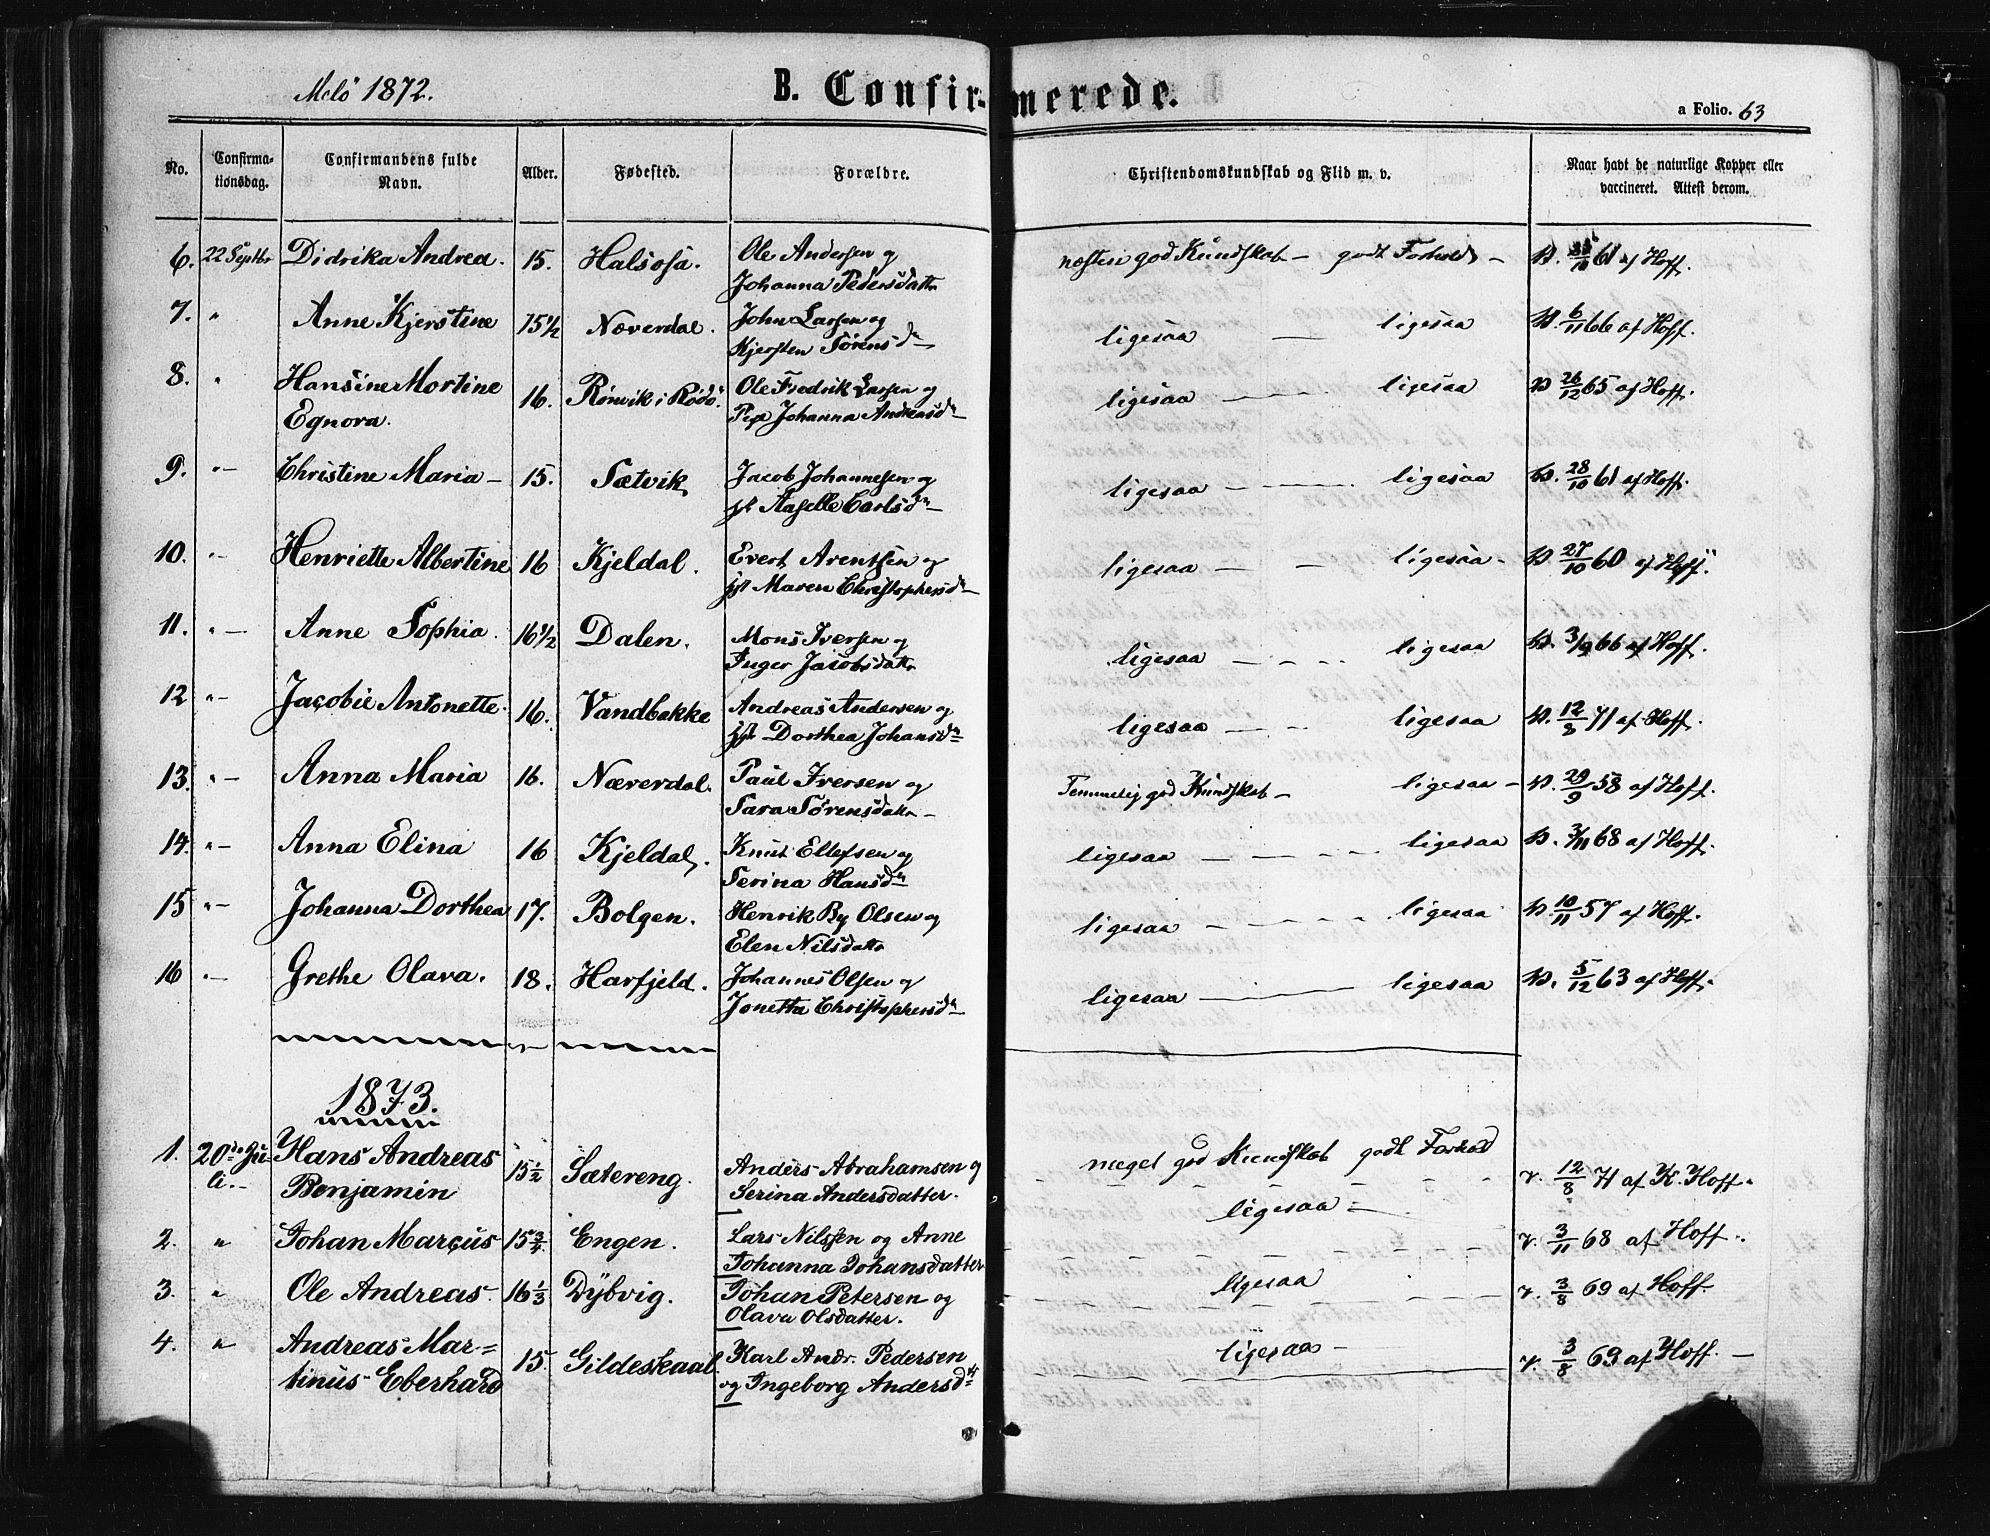 Melö 1872.
B. Confirmerede.
a Folio. 63
No. Confirma-tionsdag. Confirmandens fulde Navn. Alder. Fødested. Forældre. Christendomskundskab og Flid m. v. Naar havt de naturlige Kopper eller vaccineret. Attest derom.
6. 22 Septbr Didrika Andrea. 15. Halsosa. Ole Andersen og
Johanna Pedersdattr
næsten god Kundskab — godt Forhold — 61 af Hoff.
7. " Anne Kjerstine 15 1/2 Næverdal. John Larsen og
Kjersten Sørensd
ligesaa — ligesaa 6/11 66 af Hoff.
8. " Hansine Mortine
Egnora. 16. Rönvik i Rödö. Ole Fredrik Larsen og
Johanna Andreasd
ligesaa - - - ligesaa 26/12 65 af Hoff.
9. " Christine Maria — 15. Sætvik Jacob Johannesen og
Carlsd
ligesaa - - - ligesaa 28/10 61 af Hoff.
10. " Henriette Albertine 16 Kjeldal. Evert Arentsen og
Maren Christophersd
ligesaa — — ligesaa - 27/10 60 af Hoff.
11. " Anne Sophia. 16 1/2 Dalen. Mons Iversen og
Inger Jacobsdattr
ligesaa - - - ligesaa 3/9 66 af Hoff.
12 " Jacobie Antonette. 16. Vandbakke Andreas Andersen og
Dorthea Johansd
ligesaa - - - ligesaa 12/8 71 af Hoff.
13. " Anna Maria 16. Næverdal. Paul Iversen og
Sara Sørensdattr —
Temmelig god Kundskab — ligesaa — 29/9 58 af Hoff.
14. " Anna Elina 16 Kjeldal. Knut Ellefsen og
Serina Hansd
ligesaa - - - ligesaa 3/11 68 af Hoff.
15 " Johanna Dorthea 17. Bolgen. Henrik By Olsen og
Elen Nilsdattr
ligesaa - - - ligesaa 10/11 57 af Hoff.
16 " Grethe Olava. 18. Harfjeld. Johannes Olsen og
Jonetta Christophersd
ligesaa - - - ligesaa 5/12 63 af Hoff.
1873.
1. 20de Ju-
li. Hans Andreas
Benjamin 15 1/2 Sætereng. Anders Abrahamsen og
Serina Andersdatter.
meget god Kundskab godt Forhold v. 12/8 71 af K. Hoff.
ligesaa
2. " Johan Marcus 15 3/4 Engen. Lars Nilssen og Anne
Johanna Johansdatter
v. 3/11 68 af Hoff.
ligesaa
3. " Ole Andreas. 16 1/3 Dÿbvig. Johan Petersen og
Olava Olsdatter.
v. 3/8 69 af Hoff.
ligesaa —
4. " Andreas Mar-
tinus Eberhard 15. Gildeskaal Karl Andr. Pedersen
og Ingeborg Andersd
v. 3/8 69 af Hoff. —